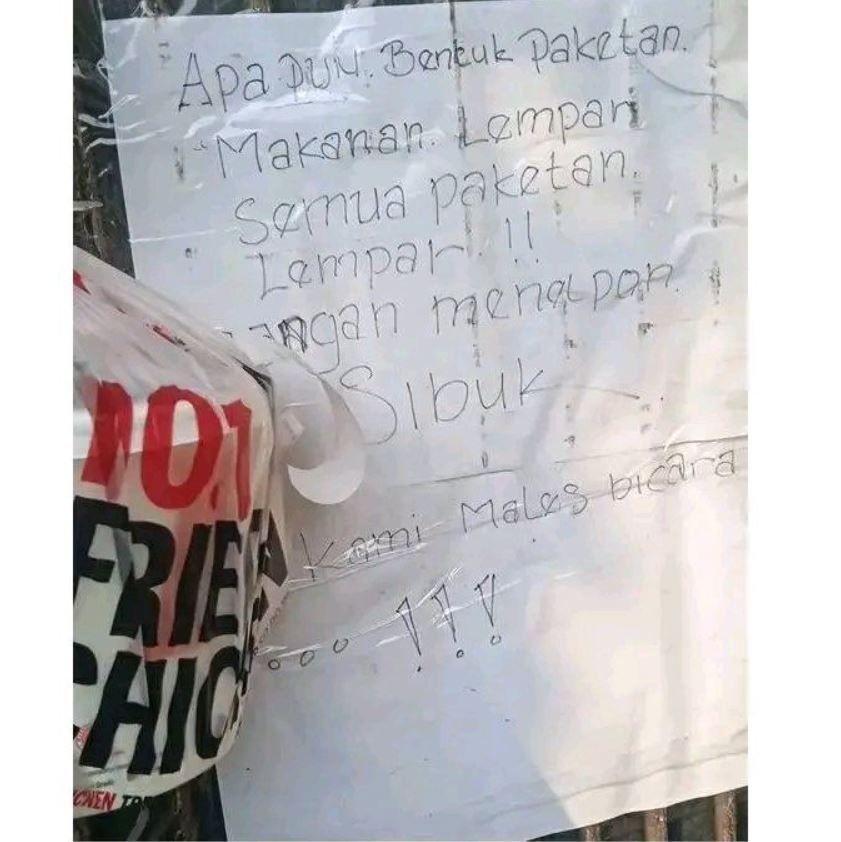 Apa pun. Bentuk paketan.
"Makanan. Lempar
Semua paketan.
Lempar. !!
angan menelpon.
Sibuk
Kami Males bicara
... !!!
101
FRIE
CHIC